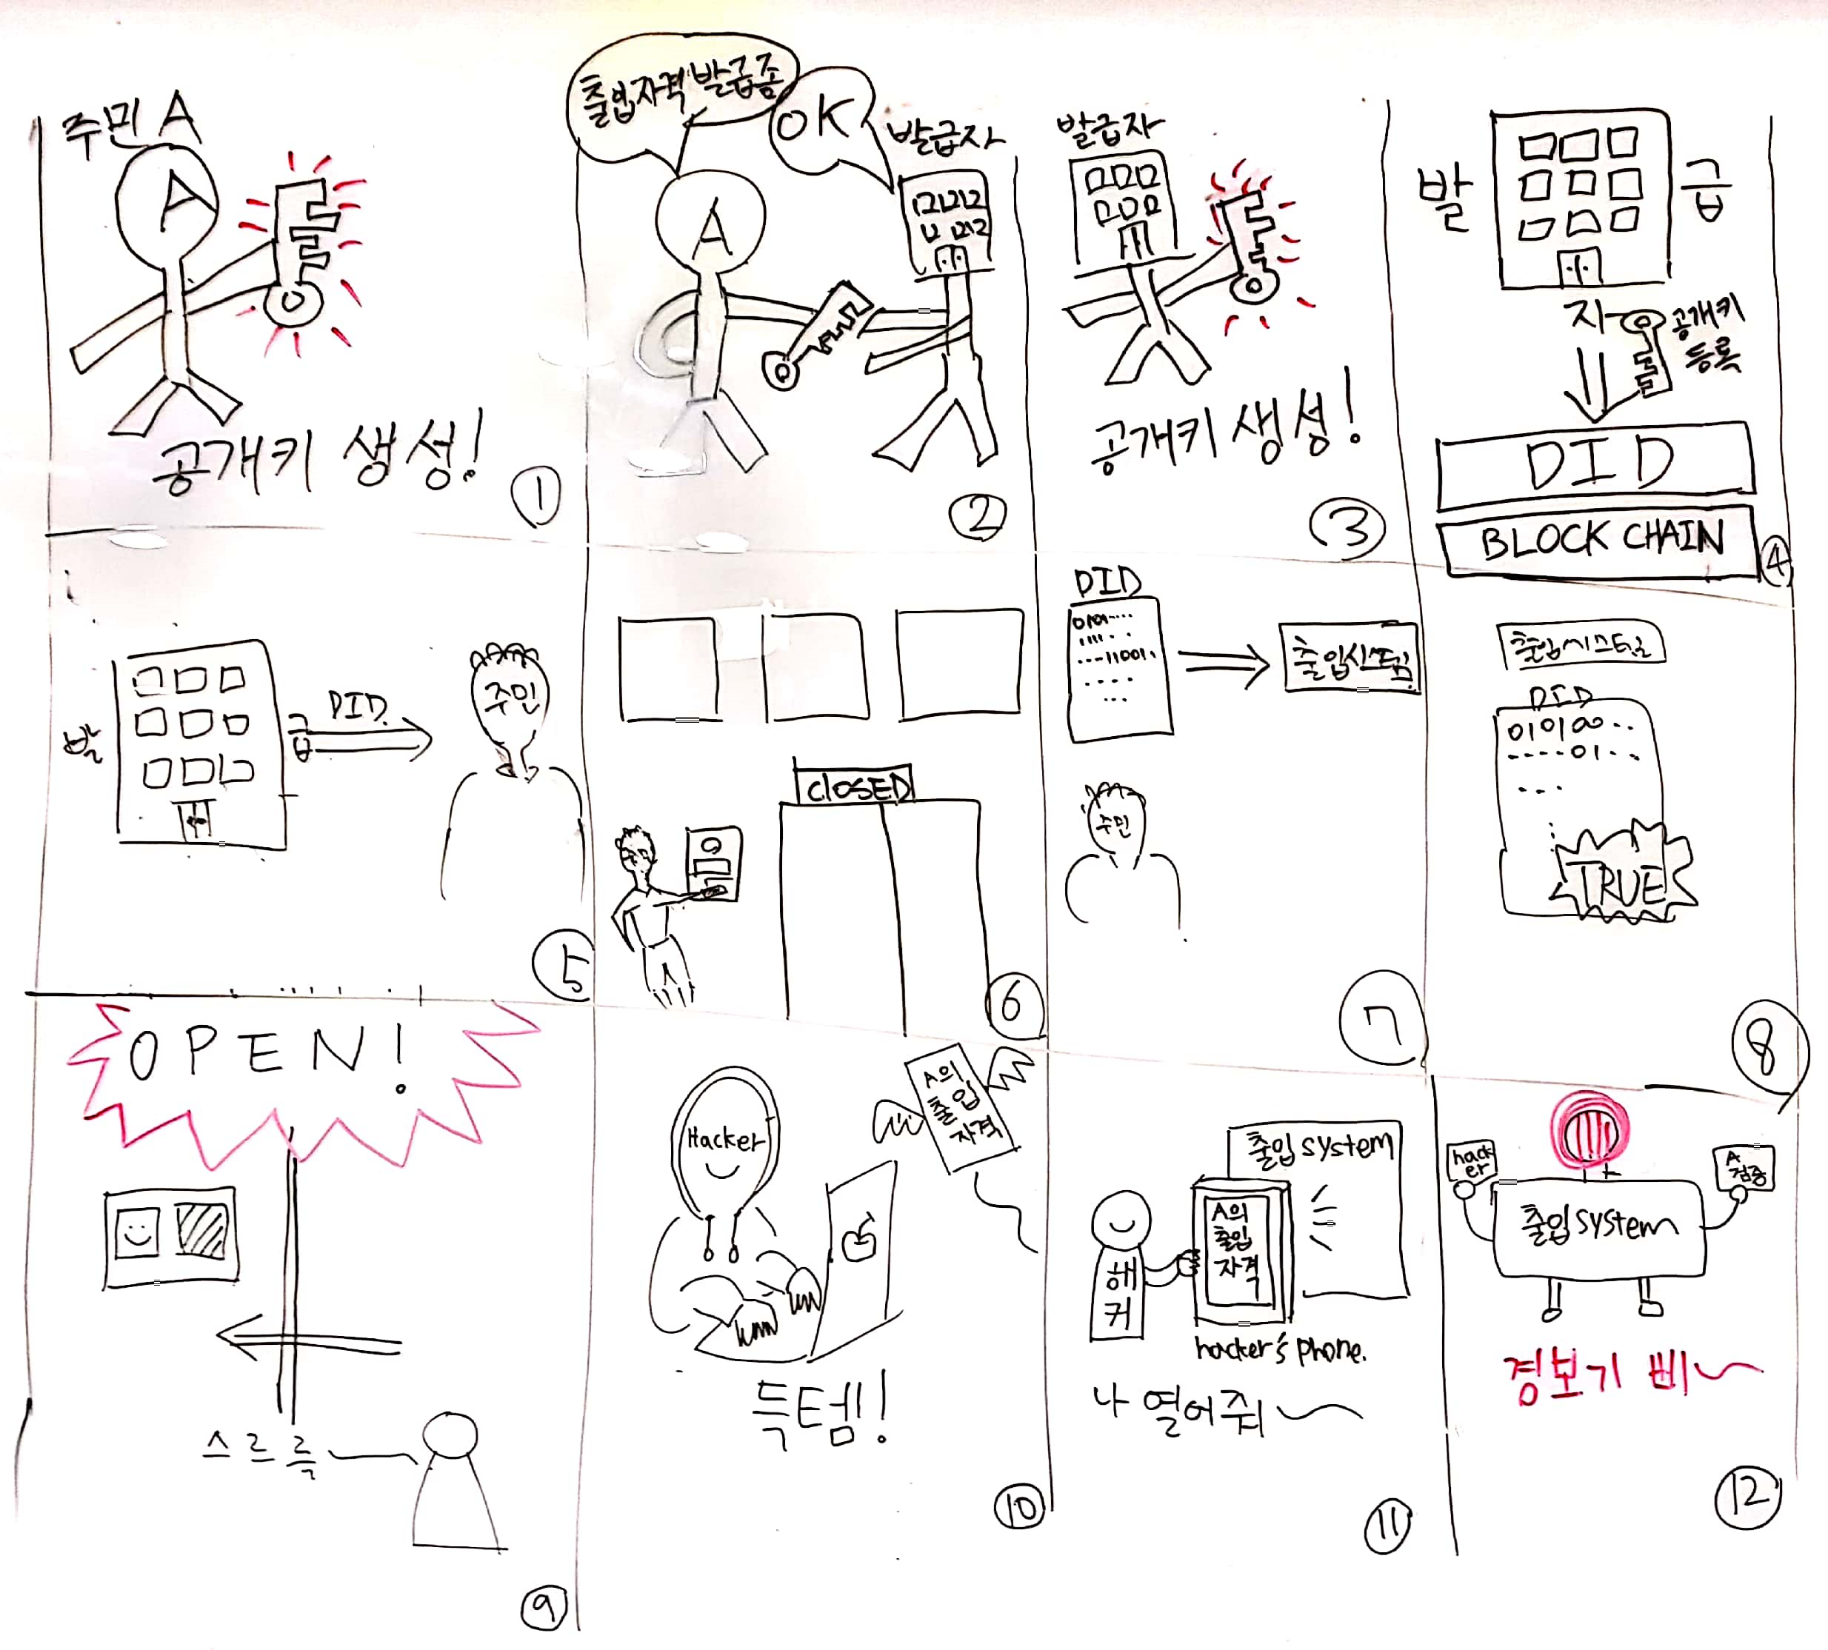 주민 A
A
공개키 생성!
①
출입자격 발급좀
OK
발급자
A
②
발급자
공개키 생성!
③
발 급
자
공개키
등록
DID
BLOCK CHAIN
④
발 급
DID
주민
⑤
CLOSED
⑥
DID
0101....
1111...
...11001..
출입시스템
주민
⑦
출입시스템
DID
010100..
....01..
TRUE
⑧
OPEN!
스르륵
⑨
Hacker
A의
출입
자격
득템!
⑩
출입 system
A의
출입
자격
해커
hacker's phone.
나 열어줘~
⑪
hack
er
A
검증
출입 system
경보기 삐~
⑫